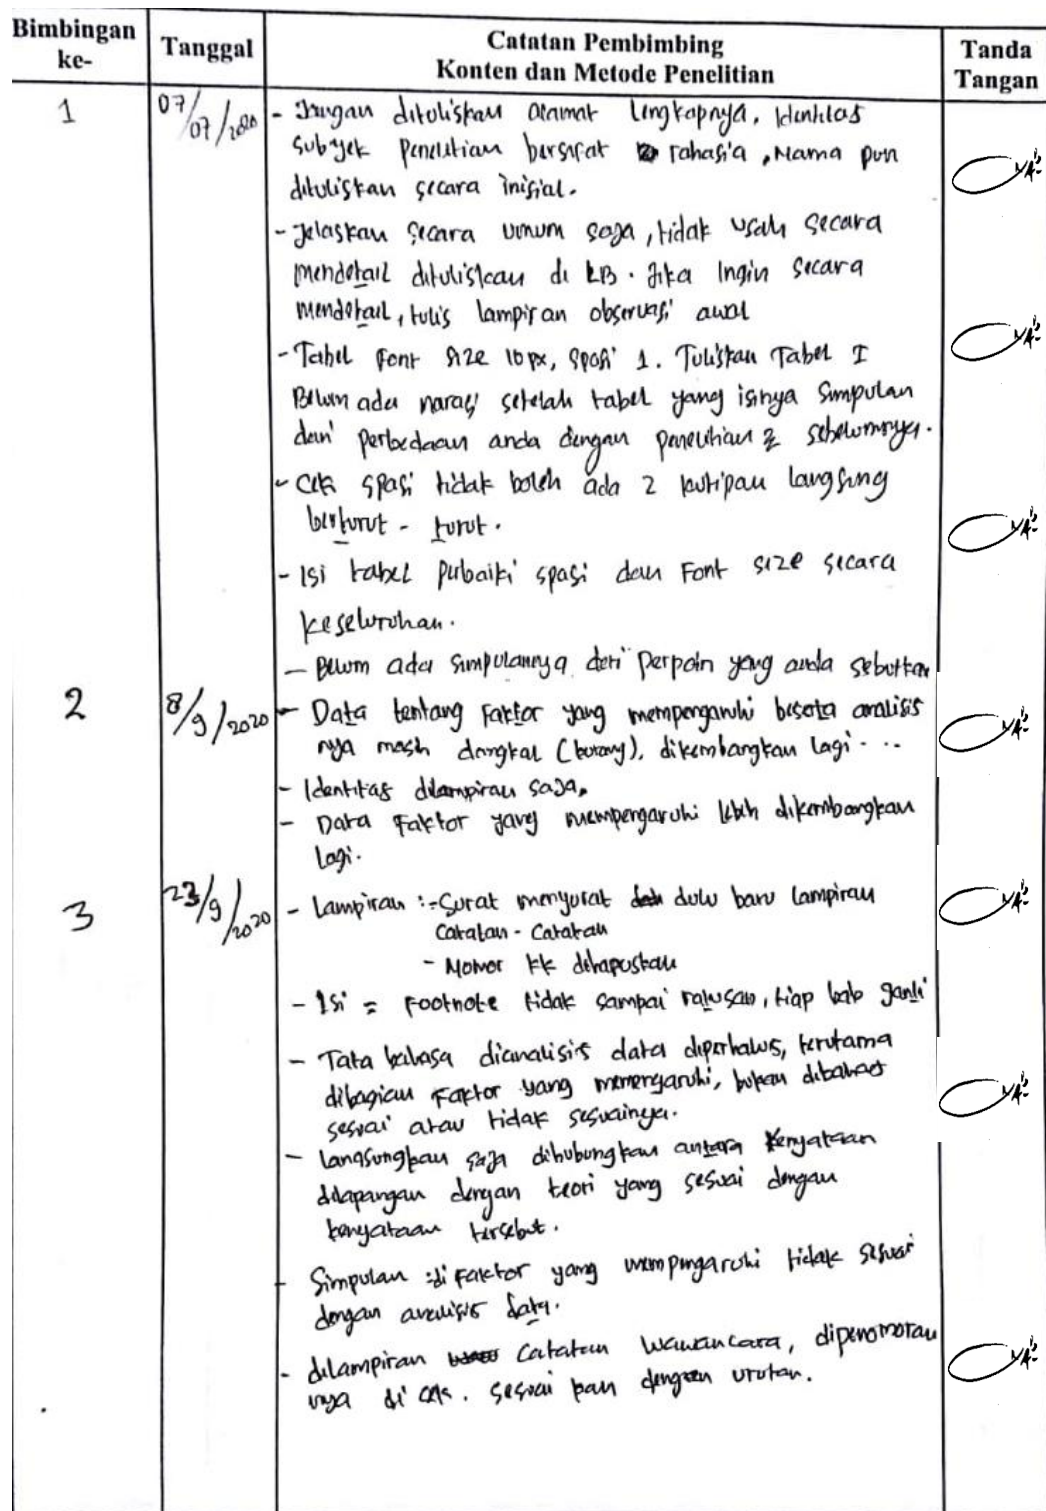 Bimbingan ke-
Tanggal
Catatan Pembimbing
Konten dan Metode Penelitian
Tanda Tangan
1
07/07/2020
- Jangan dituliskan alamat lengkapnya, Identitas
subyek penelitian bersifat rahasia, Nama pun
dituliskan secara inisial.
- Jelaskan secara umum saja, tidak usah secara
mendetail dituliskan di LB. Jika Ingin secara
mendetail, tulis lampiran observasi awal
- Tabel Font size 10 px, spasi 1. Tuliskan Tabel I
Belum ada narasi setelah tabel yang isinya Simpulan
dari perbedaan anda dengan penelitian2 sebelumnya.
- Cek spasi tidak boleh ada 2 kutipan langsung
berturut - turut.
- Isi tabel perbaiki spasi dan Font size secara
keseluruhan.
- Belum ada simpulannya dari perpoin yang anda sebutkan
2
8/9/2020
- Data tentang Faktor yang mempengaruhi beserta analisis
nya masih dangkal (kurang), dikembangkan lagi...
- Identitas dilampiran saja.
- Data Faktor yang mempengaruhi lebih dikembangkan
lagi.
3
23/9/2020
- Lampiran :- Surat menyurat dulu baru lampiran
Catatan - Catatan
- Nomor KK dihapuskan
- Isi = Footnote tidak sampai ratusan, tiap bab ganti
- Tata bahasa dianalisis data diperhalus, terutama
dibagian Faktor yang memengaruhi, bukan dibahas
sesuai atau tidak sesuainya.
- Langsungkan saja dihubungkan antara Kenyataan
dilapangan dengan teori yang sesuai dengan
kenyataan tersebut.
- Simpulan :di Faktor yang mempengaruhi tidak sesuai
dengan analisis data.
- dilampiran Catatan Wawancara, dipenomoran
nya di cek. Sesuai kan dengan urutan.